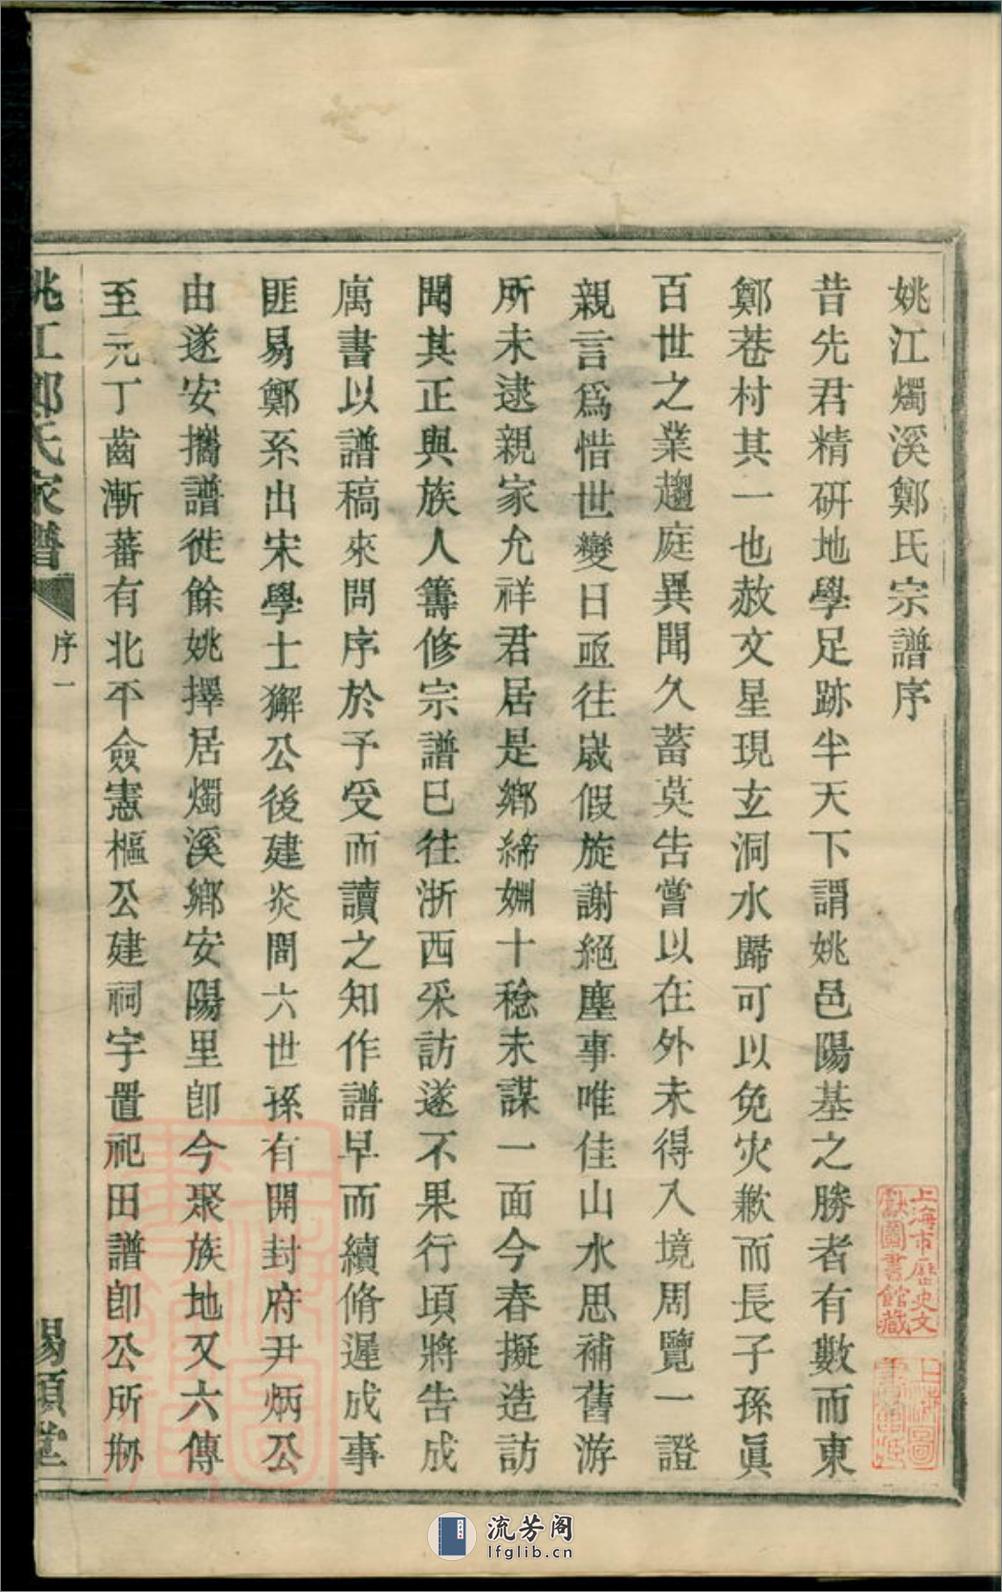 姚江燭溪鄭氏宗譜序
昔先君精研地學足跡半天下謂姚邑陽基之勝者有數而東
鄭巷村其一也赦文星現玄洞水歸可以免灾歉而長子孫眞
百世之業趨庭異聞久蓄莫告嘗以在外未得入境周覽一證
親言爲惜世變日亟往歲假旋謝絕塵事唯佳山水思補舊游
所未逮親家允祥君居是鄉締姻十稔未謀一面今春擬造訪
聞其正與族人籌修宗譜已往浙西采訪遂不果行頃將告成
寓書以譜稿來問序於予受而讀之知作譜早而續脩遲成事
匪易鄭系出宋學士獬公後建炎間六世孫有開封府尹炳公
由遂安攜譜徙餘姚擇居燭溪鄉安陽里卽今聚族地又六傳
至元丁齒漸蕃有北平僉憲樞公建祠宇置祀田譜卽公所剏
姚江鄭氏家譜
序一
錫頭堂
上海市歷史文
獻圖書館藏
流芳阁
lfglib.cn